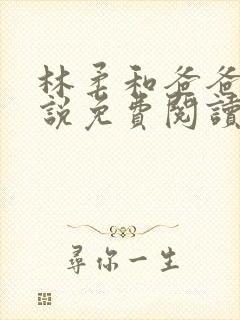 林柔和爸爸
說免費閱讀
尋你一生